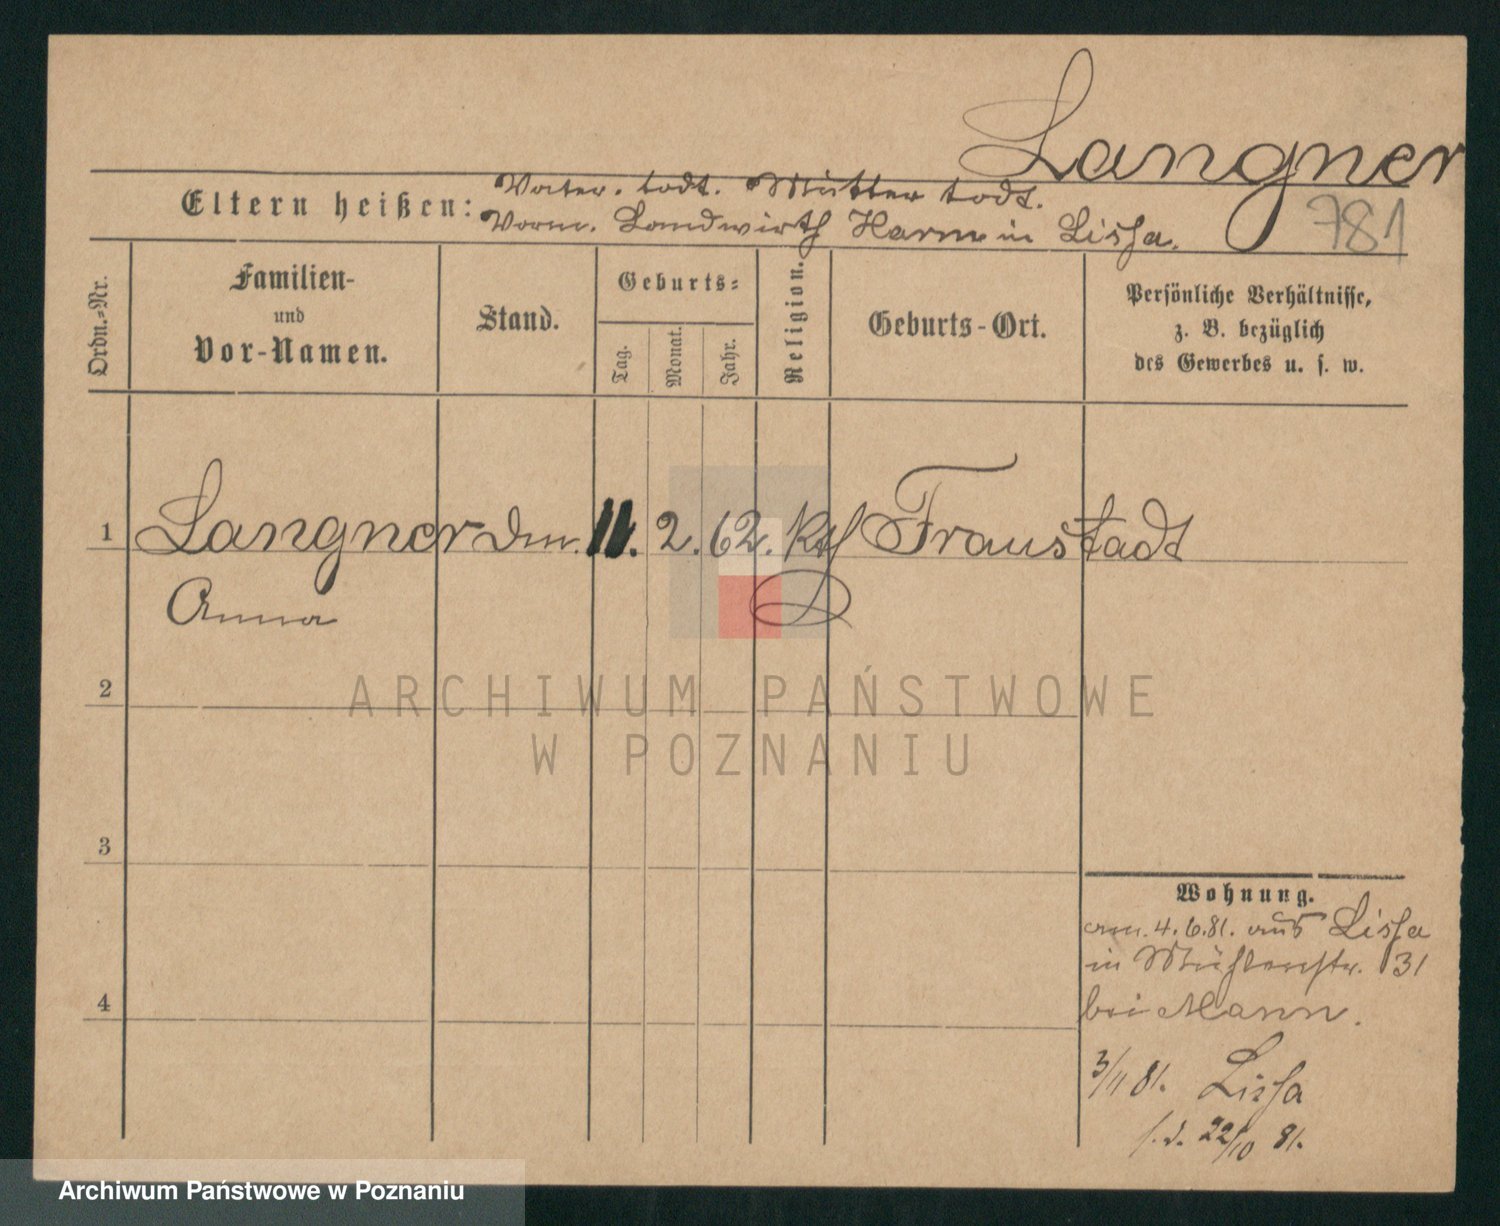 Langner
781
Eltern heißen: Vater. todt. Mutter todt.
Vorm. Landwirth Harm in Lissa.
Ordn.-Nr.
Familien-
und
Vor-Namen.
Stand.
Geburts-
Tag.
Monat.
Jahr.
Religion.
Geburts-Ort.
Persönliche Verhältnisse,
z. B. bezüglich
des Gewerbes u. s. w.
1 Langner 11. 2. 62. Kth Fraustadt
Anna
2
ARCHIWUM PAŃSTWOWE
W POZNANIU
3
Wohnung.
am. 4. 6. 81. aus Lissa
in Mühlenstr. 31
4
bei Mann.
3/11 81. Lissa
s. d. 22/10 81.
Archiwum Państwowe w Poznaniu